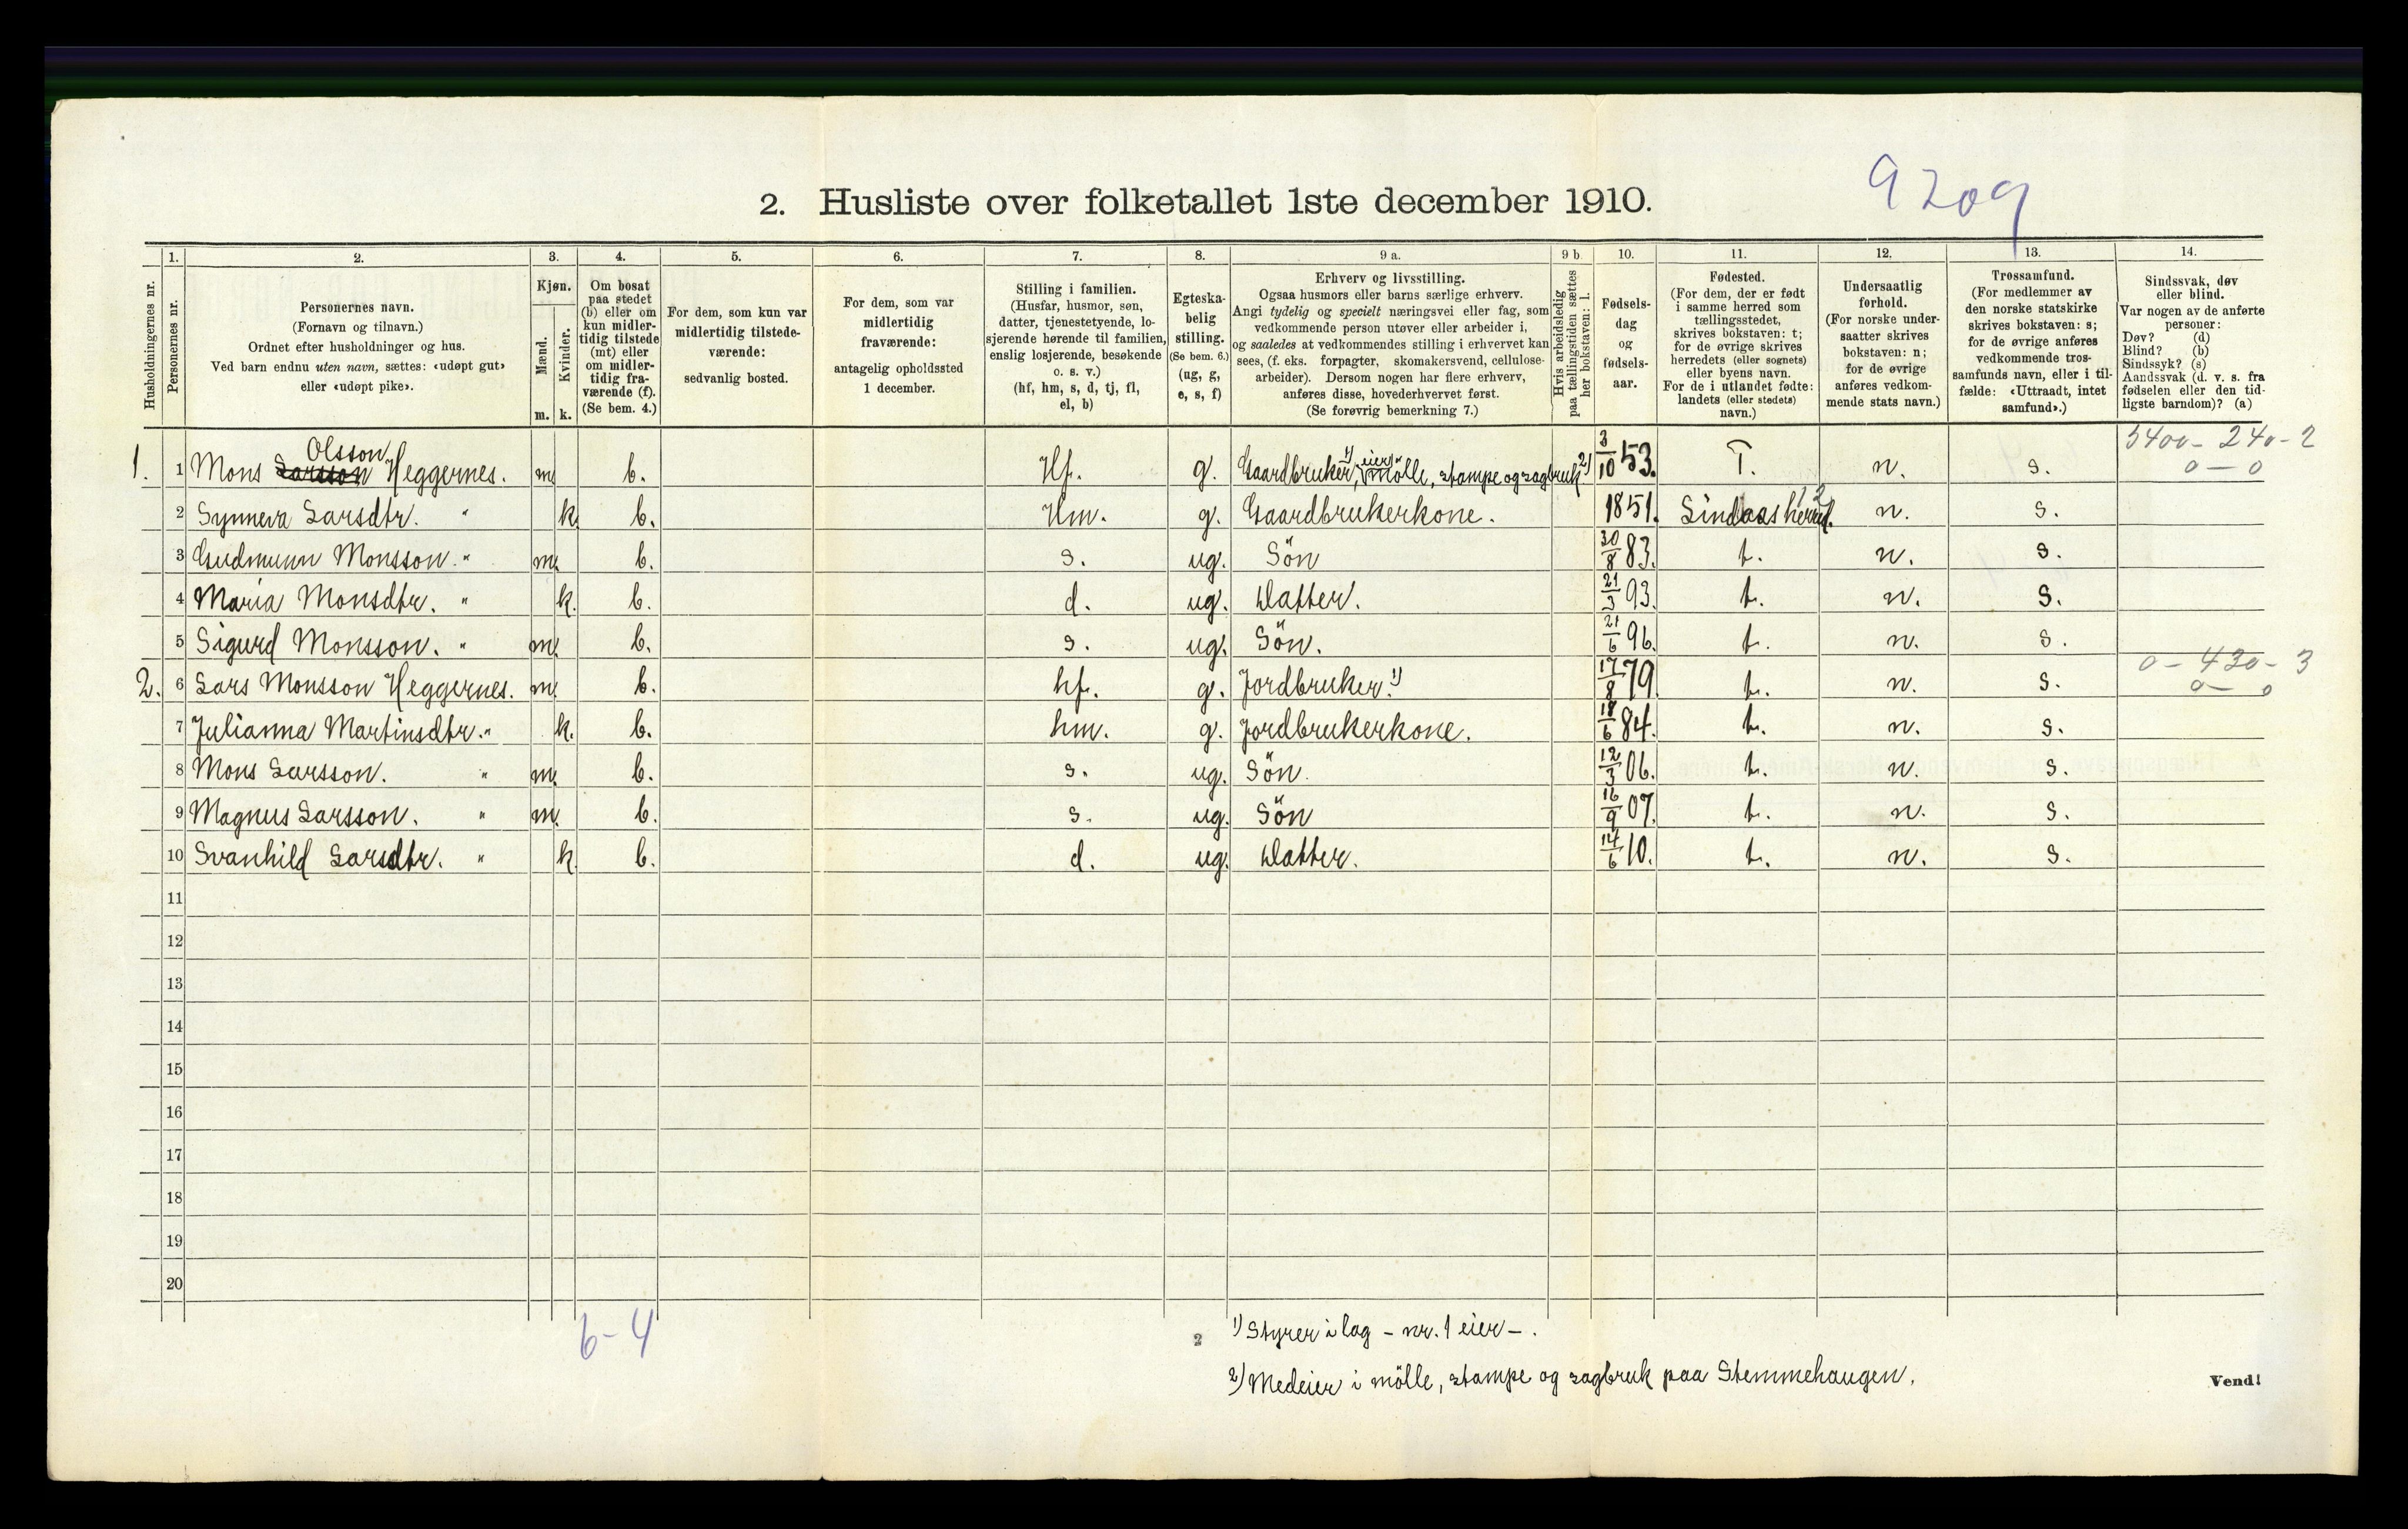 9209
2. Husliste over folketallet 1ste december 1910.
Husholdningernes nr.
1.
Personernes nr.
2.
Personernes navn.
(Fornavn og tilnavn.)
Ordnet efter husholdninger og hus.
Ved barn endnu uten navn, sættes: «udøpt gut»
eller «udøpt pike».
3.
Kjøn.
Mænd.
Kvinder.
m. k.
4.
Om bosat
paa stedet
(b) eller om
kun midler-
tidig tilstede
(mt) eller
om midler-
tidig fra-
værende (f).
(Se bem. 4.)
5.
For dem, som kun var
midlertidig tilstede-
værende:
sedvanlig bosted.
6.
For dem, som var
midlertidig
fraværende:
antagelig opholdssted
1 december.
7.
Stilling i familien.
(Husfar, husmor, søn,
datter, tjenestetyende, lo-
sjerende hørende til familien,
enslig losjerende, besøkende
o. s. v.)
(hf, hm, s, d, tj, fl,
el, b)
8.
Egteska-
belig
stilling.
(Se bem. 6.)
(ug, g,
e, s, f)
9 a.
Erhverv og livsstilling.
Ogsaa husmors eller barns særlige erhverv.
Angi tydelig og specielt næringsvei eller fag, som
vedkommende person utøver eller arbeider i,
og saaledes at vedkommendes stilling i erhvervet kan
sees, (f. eks. forpagter, skomakersvend, cellulose-
arbeider). Dersom nogen har flere erhverv,
anføres disse, hovederhvervet først.
(Se forøvrig bemerkning 7.)
9 b
Hvis arbeidsledig
paa tællingstiden sættes
her bokstaven: l.
10.
Fødsels-
dag
og
fødsels-
aar.
11.
Fødested.
(For dem, der er født
i samme herred som
tællingsstedet,
skrives bokstaven: t;
for de øvrige skrives
herredets (eller sognets)
eller byens navn.
For de i utlandet fødte:
landets (eller stedets)
navn.)
12.
Undersaatlig
forhold.
(For norske under-
saatter skrives
bokstaven: n;
for de øvrige
anføres vedkom-
mende stats navn.)
13.
Trossamfund.
(For medlemmer av
den norske statskirke
skrives bokstaven: s;
for de øvrige anføres
vedkommende tros-
samfunds navn, eller i til-
fælde: «Uttraadt, intet
samfund».)
14.
Sindssvak, døv
eller blind.
Var nogen av de anførte
personer:
Døv? (d)
Blind? (b)
Sindssyk? (s)
Aandssvak (d. v. s. fra
fødselen eller den tid-
ligste barndom)? (a)
5400 - 240 - 2
0 - 0
1. 1 Mons Larsson Olsson Heggernes. m. b. Hf. g. Gaardbruker,1) eier mölle, stampe og sagbruk2) 3/10 53. T. n. s.
2 Synneva Larsdtr. " k. b. Hm. g. Gaardbrukerkone. 1851. Lindaas herred. 12 n. s.
3 Gudmunn Monsson. " m. b. s. ug. Sön 30/8 83. t. n. s.
4 Maria Monsdtr. " k. b. d. ug. Datter. 21/3 93. t. n. s.
5 Sigurd Monsson. " m. b. s. ug. Sön. 21/6 96. t. n. s.
0 - 430 - 3
0 - 0
2. 6 Lars Monsson Heggernes. m. b. hf. g. Jordbruker.1) 17/8 79. t. n. s.
7 Julianna Martinsdtr. " k. b. hm. g. Jordbrukerkone. 18/6 84. t. n. s.
8 Mons Larsson. " m. b. s. ug. Sön. 12/3 06. t. n. s.
9 Magnus Larsson. " m. b. s. ug. Sön 16/9 07. t. n. s.
10 Svanhild Larsdtr. " k. b. d. ug. Datter. 14/6 10. t. n. s.
11
12
13
14
15
16
17
18
19
20
6 - 4
2
1) Styrer i lag - nr. 1 eier - .
2) Medeier i mölle, stampe og sagbruk paa Stemmehaugen.
Vend!